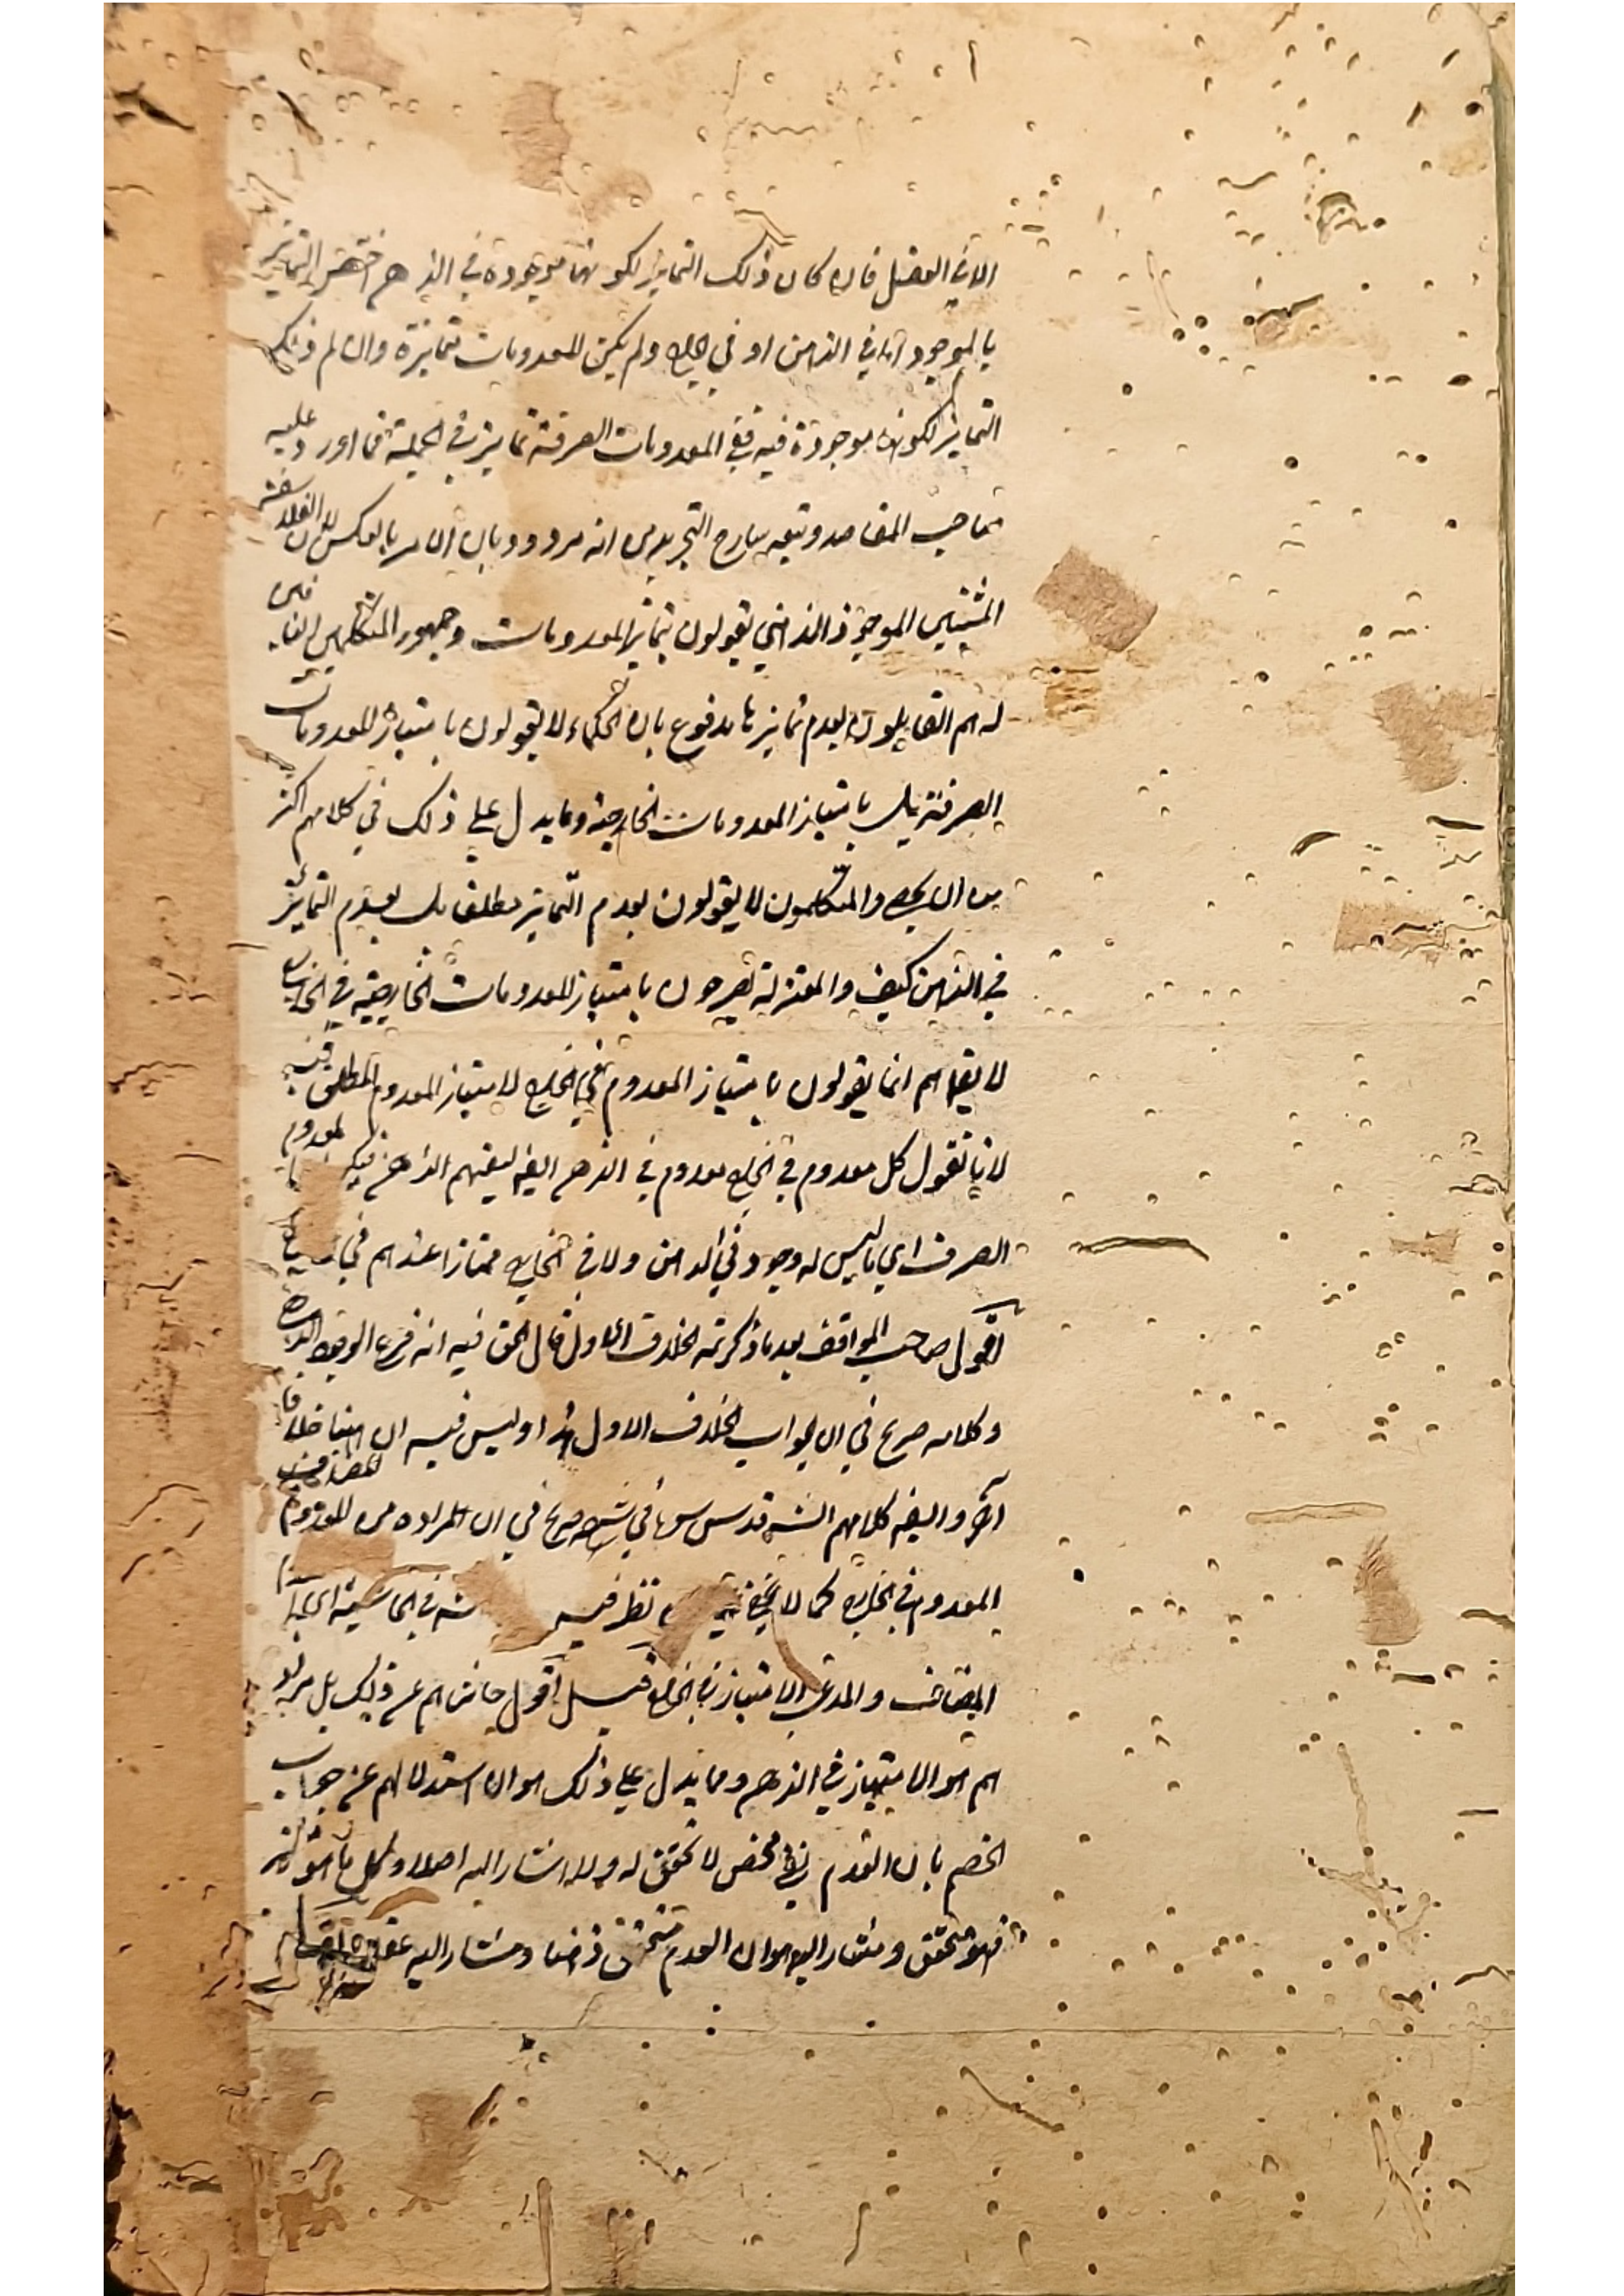 الا في العقل فان كان ذلك التمايز لكونها موجودة في الذهن اختص التمايز
بالموجود اما في الذهن او في الخارج ولم يكن للمعدومات تمايزة وان لم ذلك
التمايز لكونها موجودة فيه ففي المعدومات الصرفة تمايز في الجملة فما اورد عليه
صاحب المقاصد وتبعه شارح التجريد من انه مردود بان الامر بالعكس لان الفلاسفة
المثبتين الموجود الذهني يقولون بتمايز المعدومات وجمهور المتكلمين النافين
له هم القايلون بعدم تمايزها مدفوع بان الحكماء لا يقولون بامتياز المعدومات
الصرفة بل بامتياز المعدومات الخارجية وما يدل على ذلك في كلامهم اكثر
من ان يحصى والمتكلمون لا يقولون بعدم التمايز مطلقا بل بعدم التمايز
في الذهن كيف والمعتزلة يصرحون بامتياز المعدومات الخارجية في الخارج
لا يقال هم انما يقولون بامتياز المعدوم في الخارج لا بامتياز المعدوم المطلق فيه
لانا نقول كل معدوم في الخارج معدوم في الذهن ايضا لنفيهم الذهن فيكون المعدوم
الصرف اي ما ليس له وجود في الذهن ولا في الخارج ممتازا عندهم في الخارج
اقول صاحب المواقف بعد ما ذكر ثمه الخلاف الاول قال الحق فيه انه فرع الوجود الذهني
وكلامه صريح في ان الجواب الخلاف الاول هذا وليس فيه ان هنا خلافا
آخر وايضا كلامهم الشريف قدس سره في شرحه صريح في ان المراد من المعدوم المضاف
المعدوم في الخارج كما لا يخفى نظر فيه في الحاشية اي
المضاف والمدعى الامتياز في الخارج قيل اقول حاشاهم عن ذلك بل مرادهم
هم هو الامتياز في الذهن ومما يدل على ذلك هو ان استدلالهم عن جهات
الخصم بان العدم نفي محض لا تحقق له ولا اشار اليه اصلا وكل ما هو متميز
فهو متحقق ومشار اليه هو ان العدم متحقق ذهنا ومشار اليه عقلا